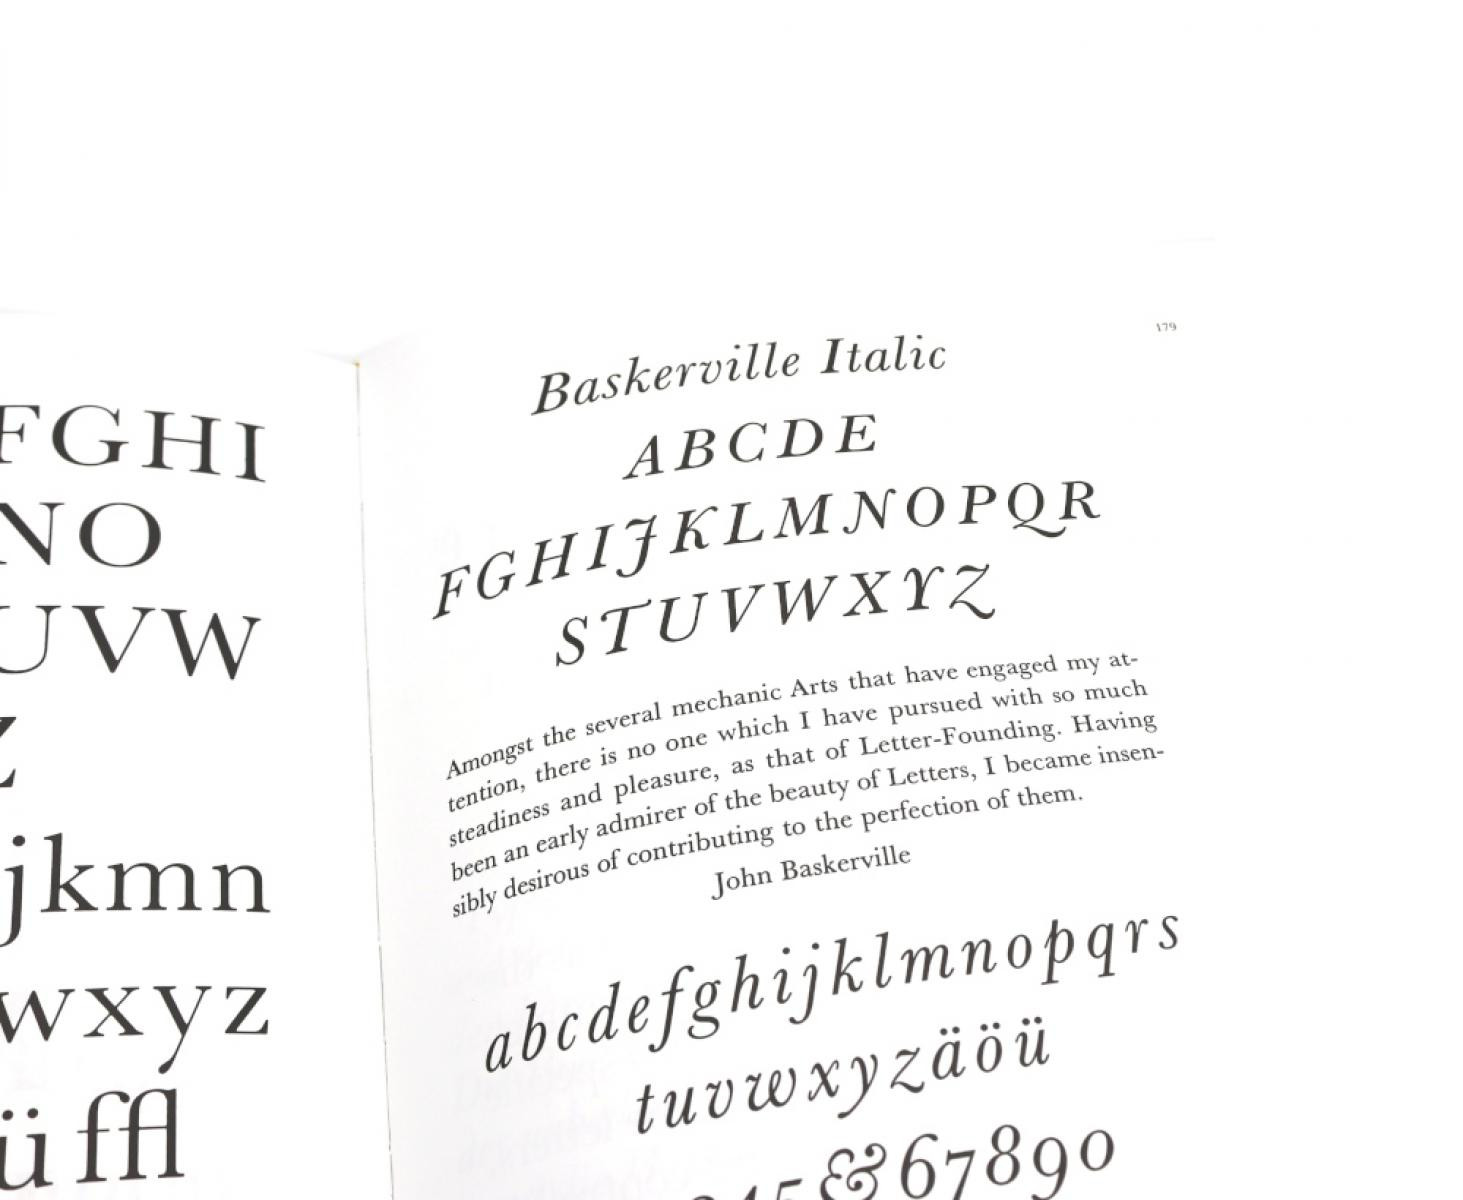 FGHI
NO
UVW
Z
jkmn
wxyz
ü ffl
179
Baskerville Italic
ABCDE
FGHIJKLMNOPQR
STUVWXYZ
Amongst the several mechanic Arts that have engaged my at-
tention, there is no one which I have pursued with so much
steadiness and pleasure, as that of Letter-Founding. Having
been an early admirer of the beauty of Letters, I became insen-
sibly desirous of contributing to the perfection of them.
John Baskerville
abcdefghijklmnopqrs
tuvwxyzäöü
345&67890